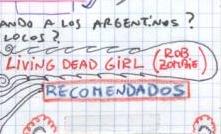 ANDO A LOS ARGENTINOS?
LOCOS?
LIVING DEAD GIRL (ROB ZOMBIE)
RECOMENDADOS